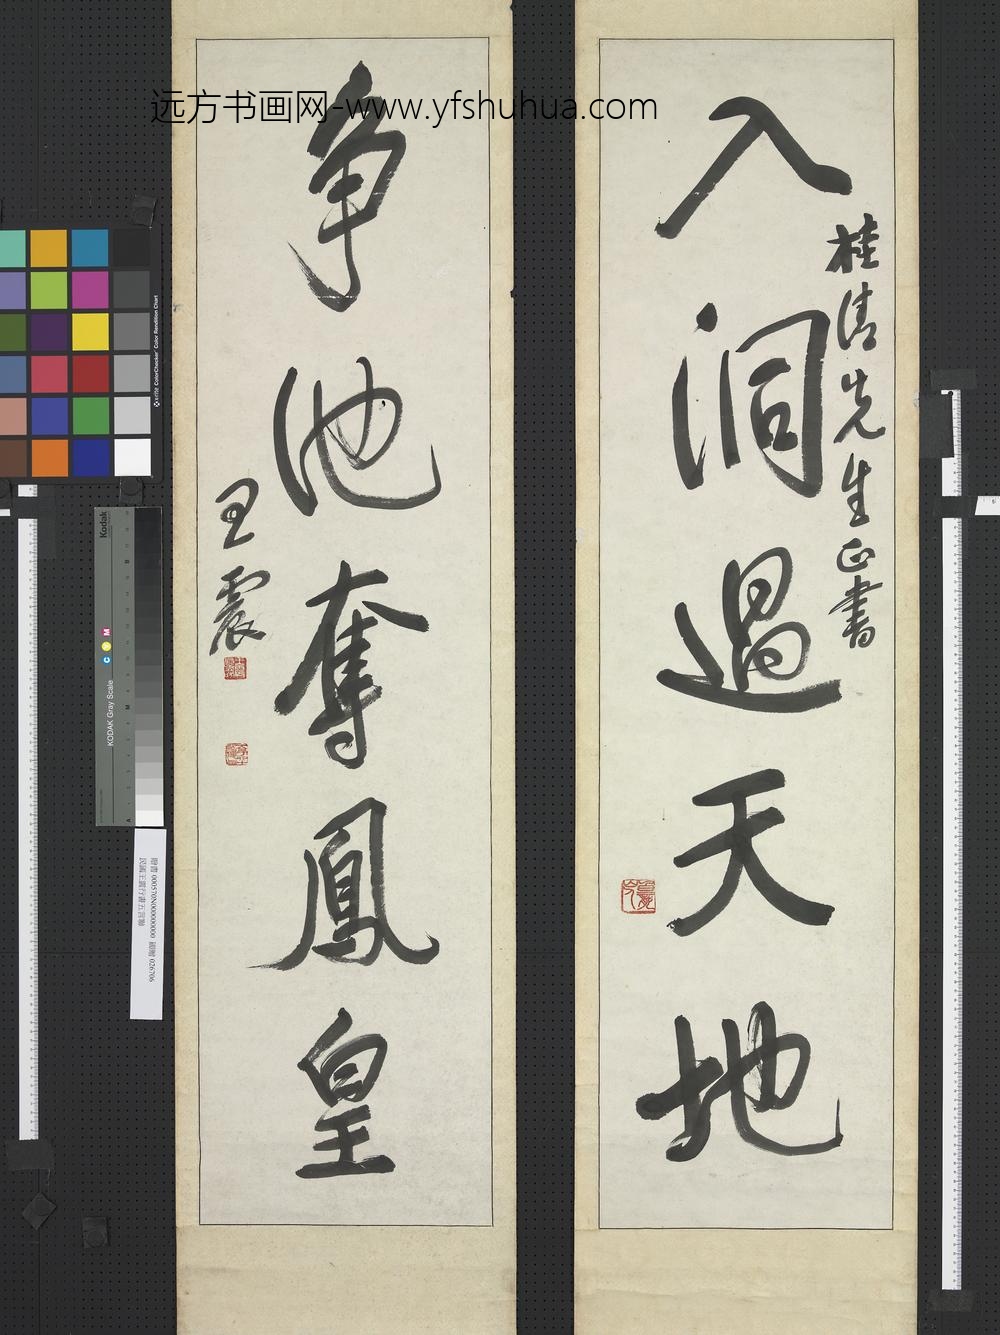 远方书画网-www.yfshuhua.com
入洞過天地
桂清先生正書
争池奪鳳皇
王震
Kodak
KODAK Gray Scale
C Y M
x-rite ColorChecker Color Rendition Chart